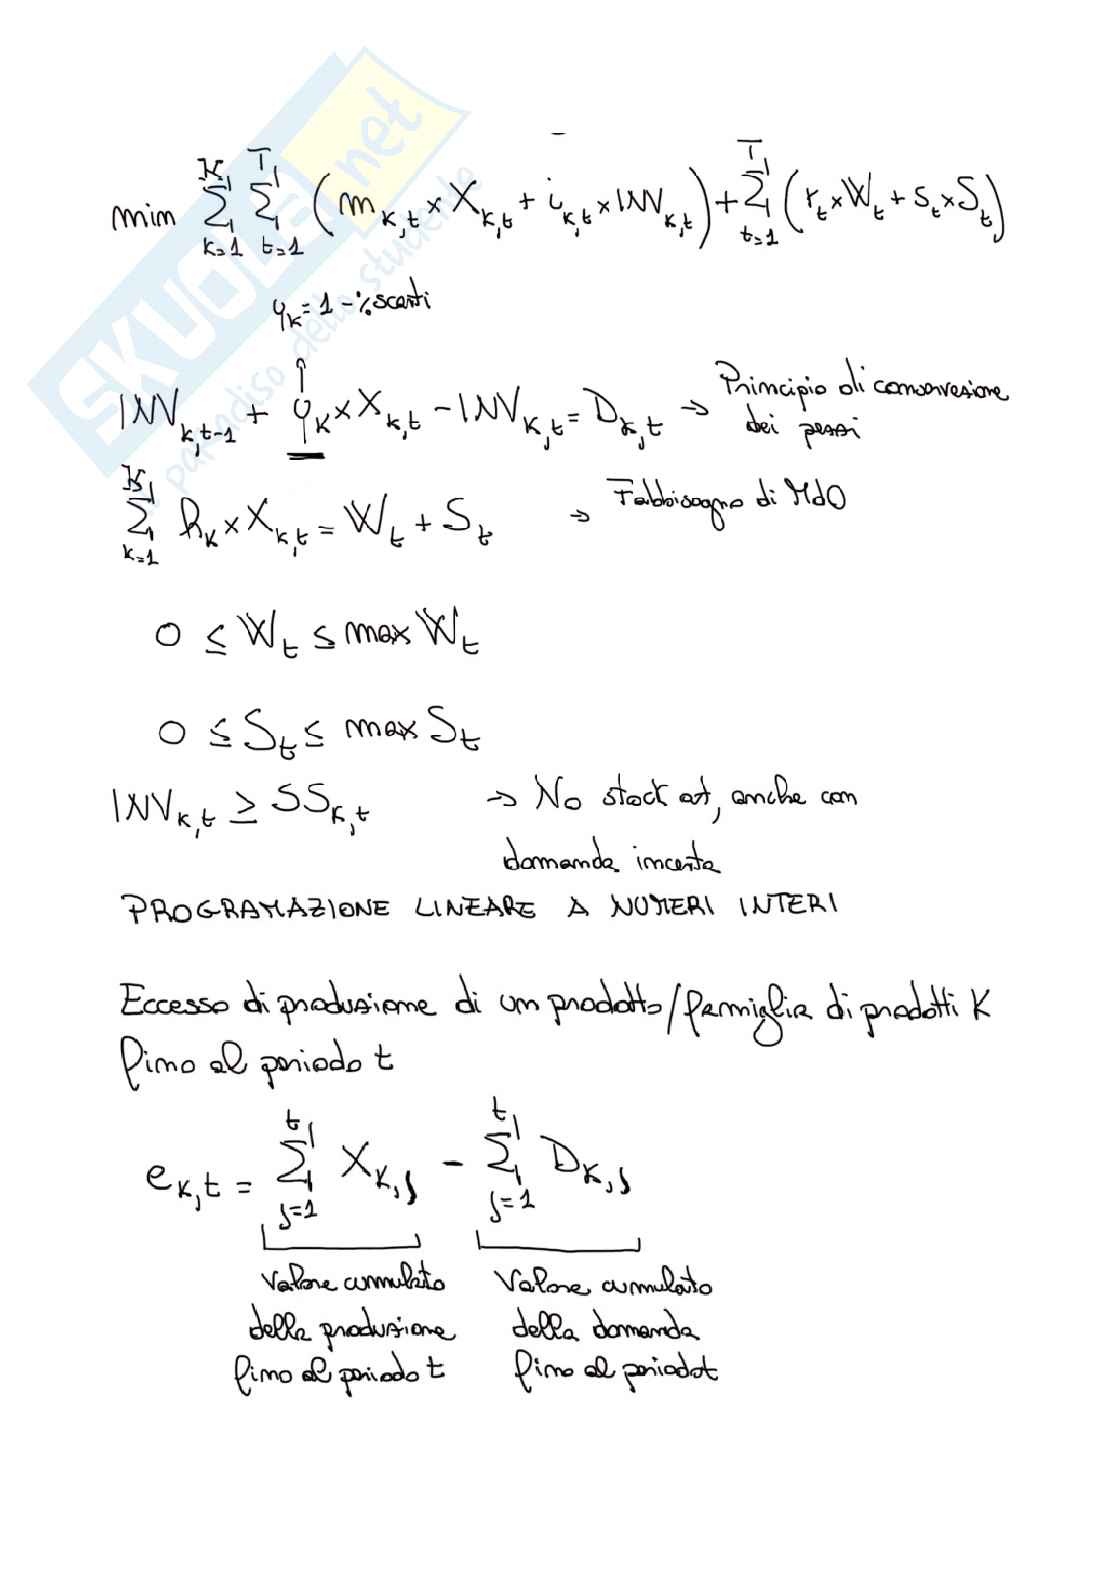 SKUOLA.net
paradiso dello studente
min Σ_{k=1}^{K} Σ_{t=1}^{T} (m_{k,t} × X_{k,t} + i_{k,t} × INV_{k,t}) + Σ_{t=1}^{T} (r_t × W_t + s_t × S_t)
y_k = 1 - % scarti
INV_{k,t-1} + y_k × X_{k,t} - INV_{k,t} = D_{k,t} → Principio di conservazione
dei pezzi
Σ_{k=1}^{K} R_k × X_{k,t} = W_t + S_t → Fabbisogno di MdO
0 ≤ W_t ≤ max W_t
0 ≤ S_t ≤ max S_t
INV_{k,t} ≥ SS_{k,t} → No stock out, anche con
domanda incerta
PROGRAMAZIONE LINEARE A NUMERI INTERI
Eccesso di produzione di un prodotto/famiglia di prodotti K
fino al periodo t
e_{k,t} = Σ_{j=1}^{t} X_{k,j} - Σ_{j=1}^{t} D_{k,j}
Valore cumulato Valore cumulato
della produzione della domanda
fino al periodo t fino al periodo t